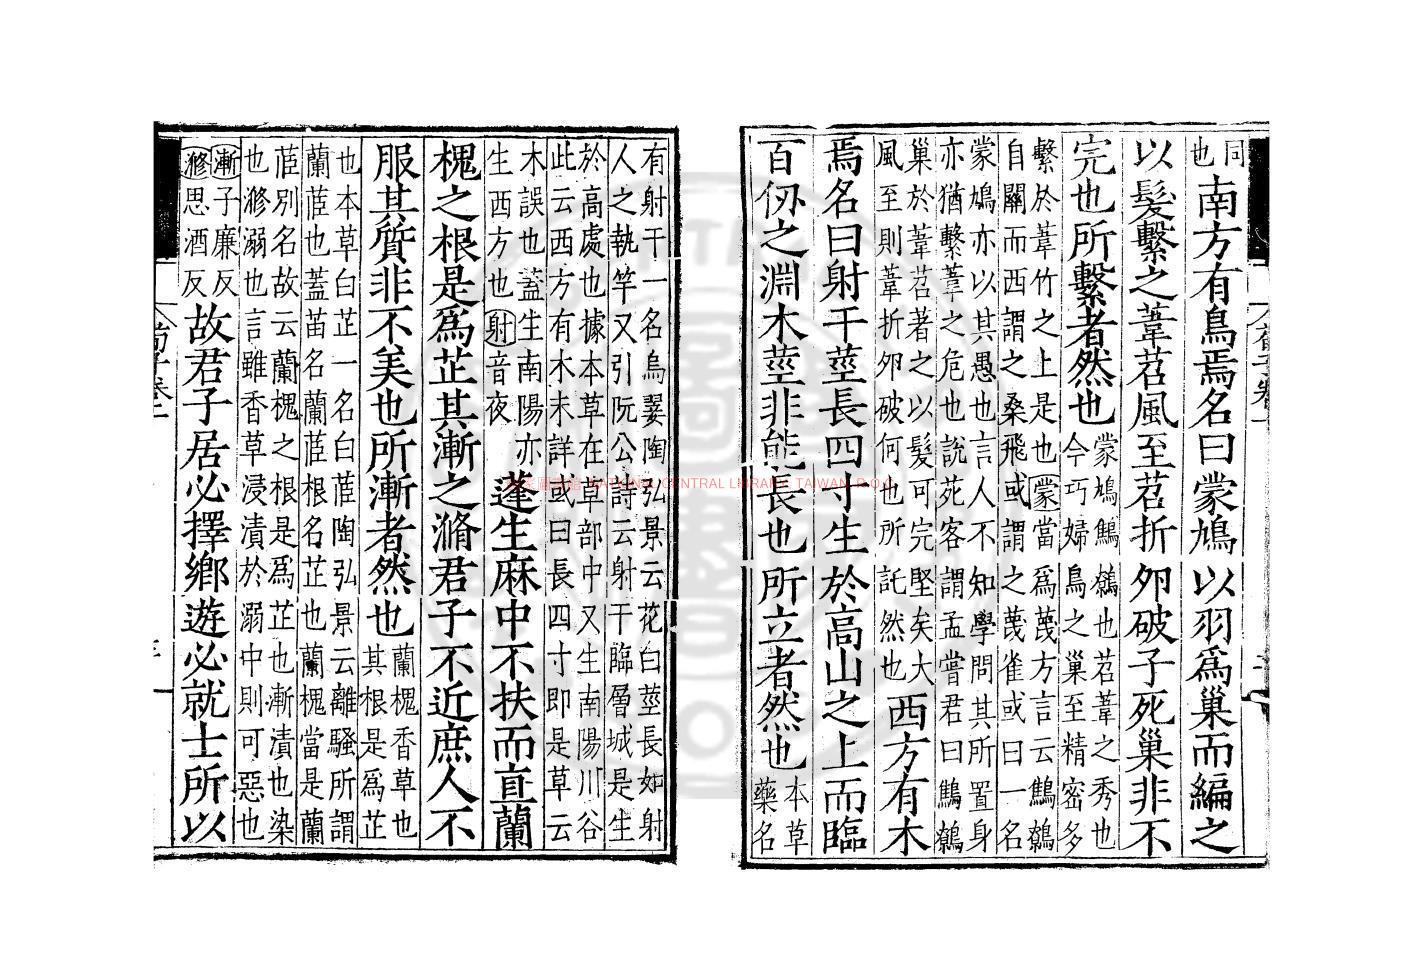 同
也
南方有鳥焉名曰蒙鳩以羽爲巢而編之
以髮繫之葦苕風至苕折卵破子死巢非不
完也所繫者然也
蒙鳩鷦鷯也苕葦之秀也
今巧婦鳥之巢至精密多
繫於葦竹之上是也蒙當爲蔑方言云鷦鷯
自關而西謂之桑飛或謂之蔑雀或曰一名
蒙鳩亦以其愚也言人不知學問其所置身
亦猶繫葦之危也說苑客謂孟嘗君曰鷦鷯
巢於葦苕著之以髮可完堅矣大
風至則葦折卵破何也所託然也
西方有木
焉名曰射干莖長四寸生於高山之上而臨
百仞之淵木莖非能長也所立者然也
本草
藥名
有射干一名烏翣陶弘景云花白莖長如射
人之執竿又引阮公詩云射干臨層城是生
於高處也據本草在草部中又生南陽川谷
此云西方有木未詳或曰長四寸即是草云
木誤也蓋生南陽亦
生西方也射音夜
蓬生麻中不扶而直蘭
槐之根是爲芷其漸之滫君子不近庶人不
服其質非不美也所漸者然也
蘭槐香草也
其根是爲芷
也本草白芷一名白茝陶弘景云離騷所謂
蘭茝也蓋苗名蘭茝根名芷也蘭槐當是蘭
茝別名故云蘭槐之根是爲芷也漸漬也染
也滫溺也言雖香草浸漬於溺中則可惡也
漸子廉反
滫思酒反
故君子居必擇鄉遊必就士所以
NATIONAL CENTRAL LIBRARY, TAIWAN, R.O.C.